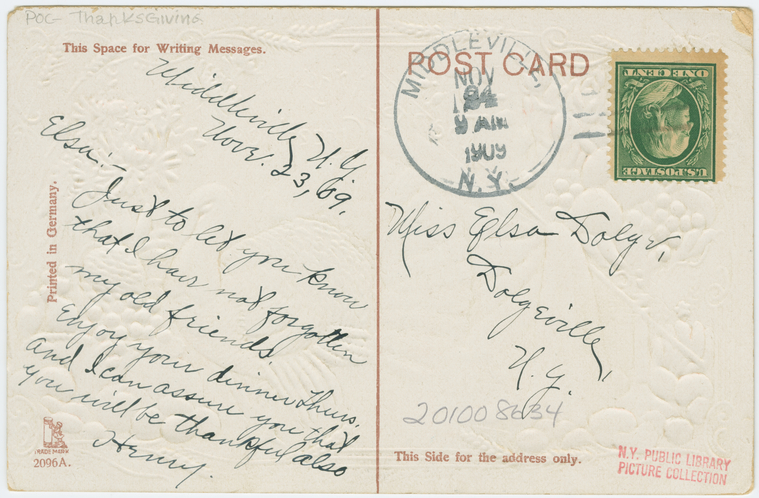 POC- Thanksgiving
This Space for Writing Messages.
Middleville, N.Y.
Nov. 23, '09.
Elsa:-
Just to let you know
that I have not forgotten
my old friends.
Enjoy your dinner Thurs.
and I can assure you that
you will be thankful also
Henry.
Printed in Germany.
TRADE MARK
2096A.
POST CARD
MIDDLEVILLE,
NOV
24
9 AM
1909
N.Y.
U.S. POSTAGE
ONE CENT
Miss Elsa Dolge,
Dolgeville,
N.Y.
201008634
This Side for the address only.
N.Y. PUBLIC LIBRARY
PICTURE COLLECTION